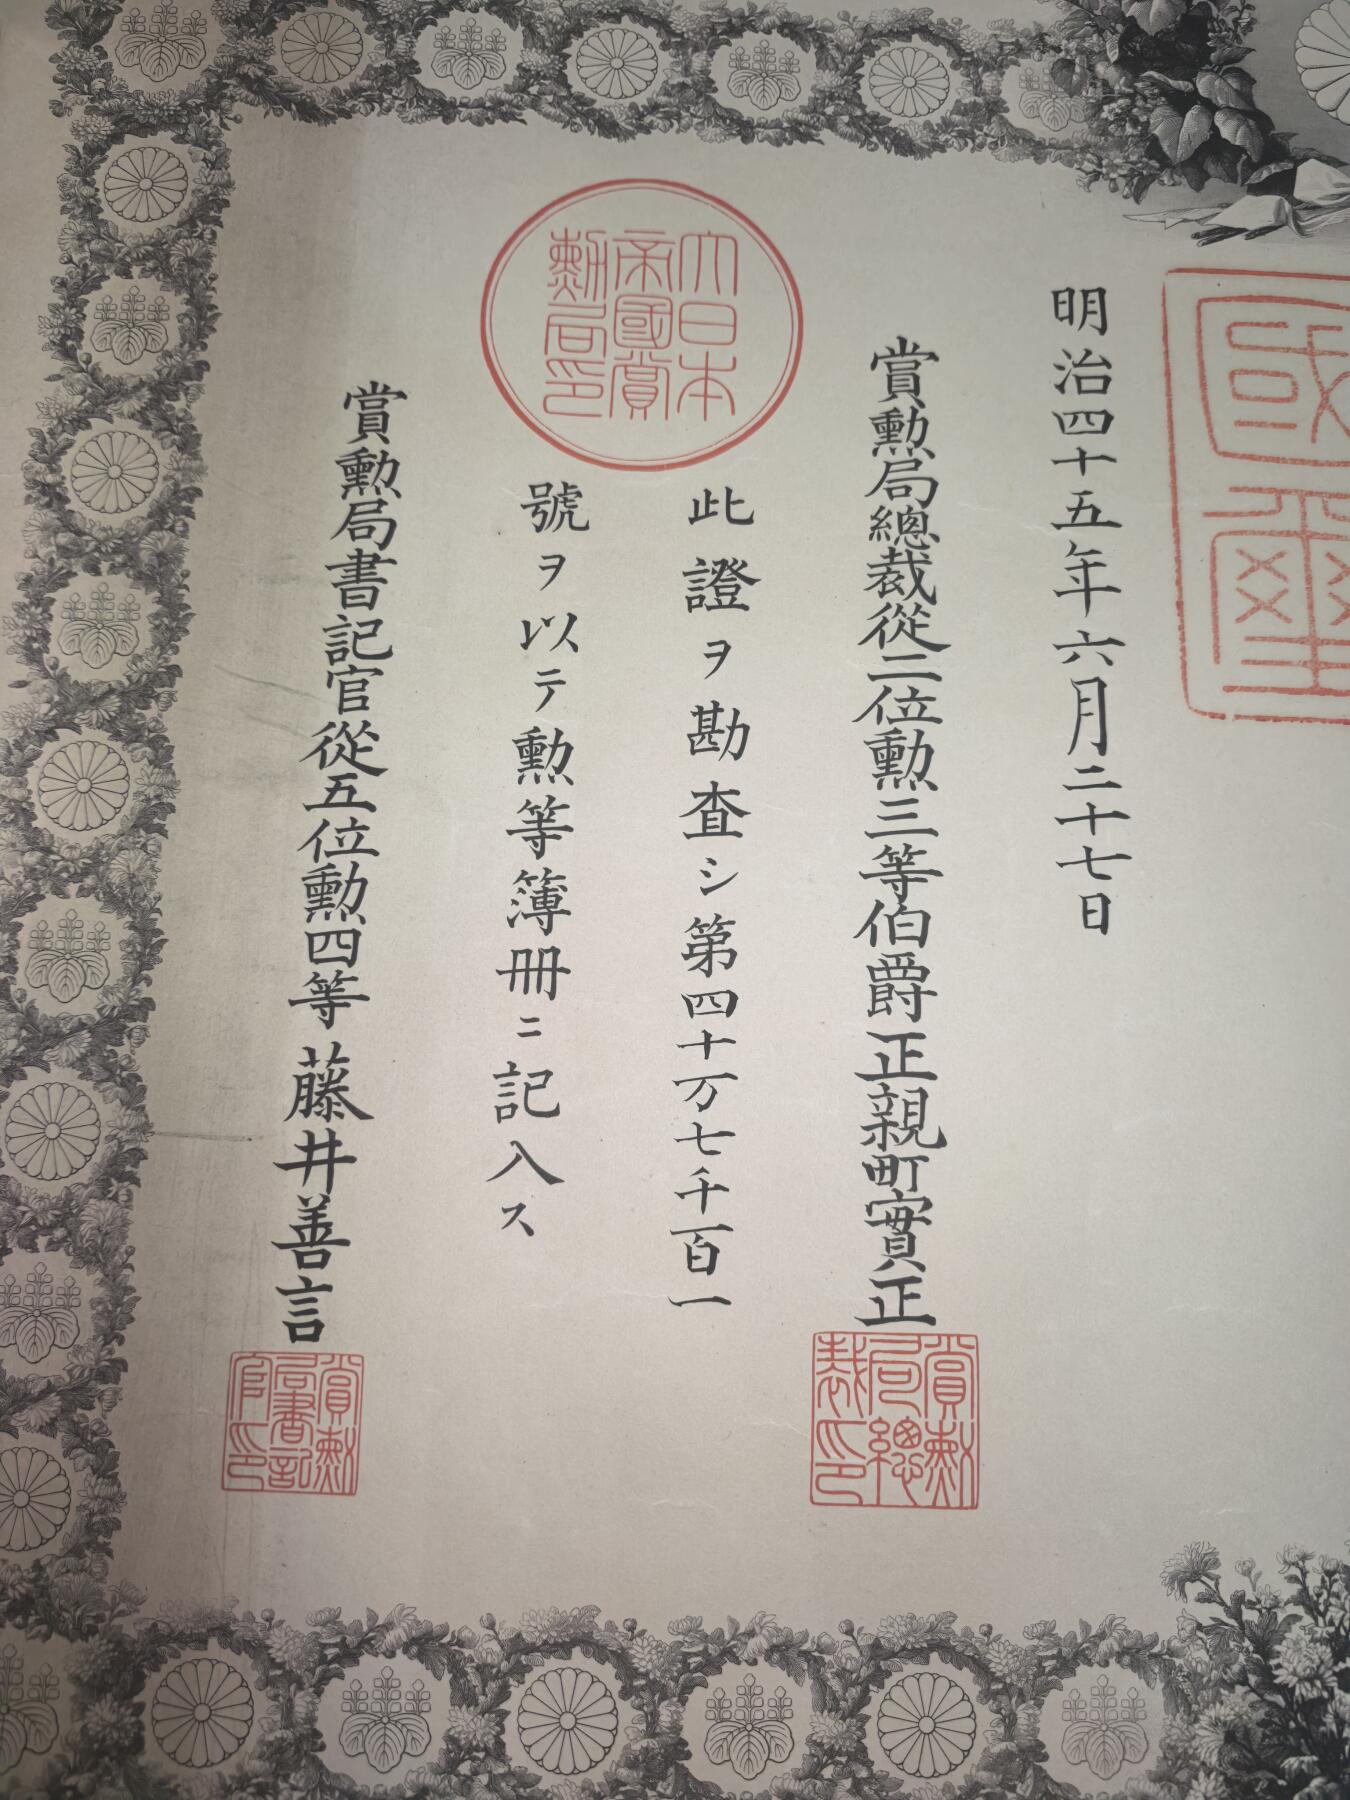 國璽
明治四十五年六月二十七日
賞勲局總裁從二位勲三等伯爵正親町實正
賞勲局總裁印
大日本帝國賞勲局印
此證ヲ勘査シ第四十万七千百一
號ヲ以テ勲等簿冊ニ記入ス
賞勲局書記官從五位勲四等藤井善言
賞勲局書記官印